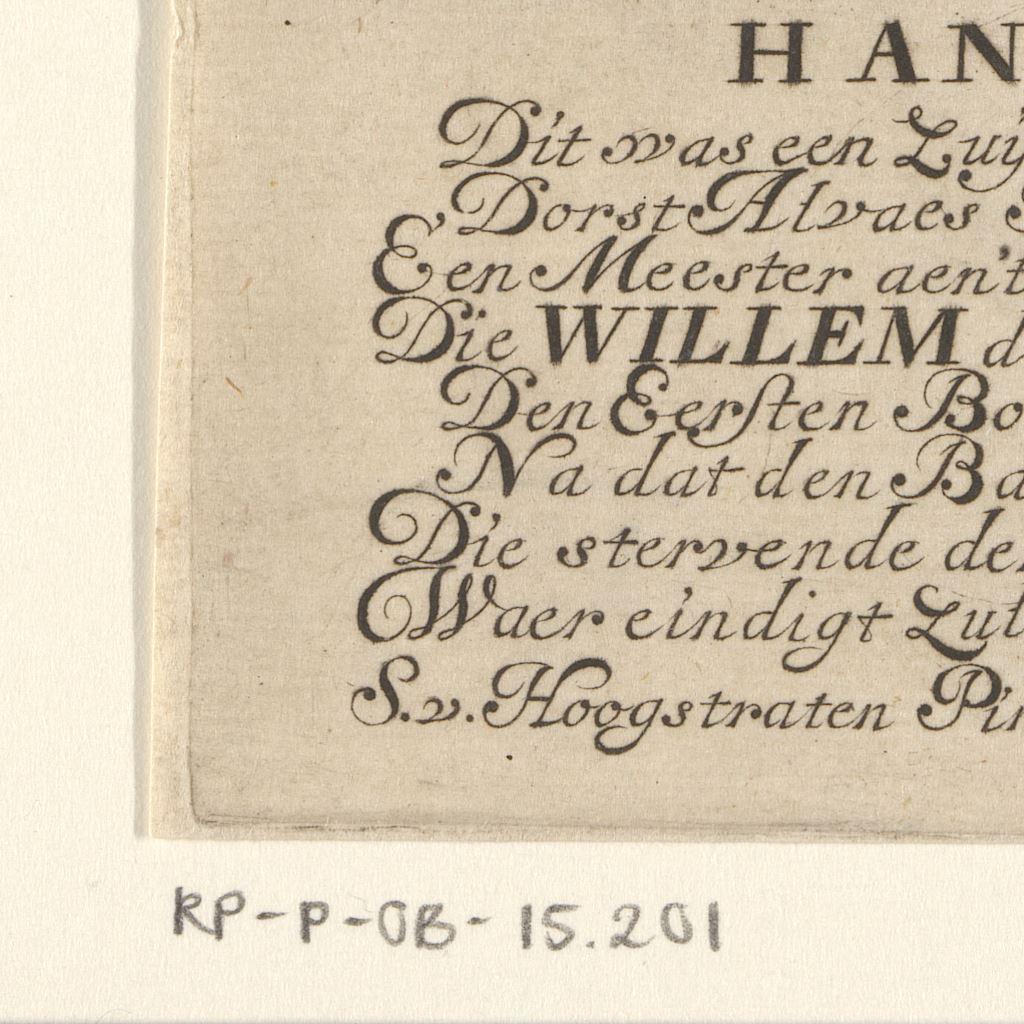 HAN
Dit was een Luy
Dorst Alvaes
Een Meester aen't
Die WILLEM d
Den Eersten Bo
Na dat den Ba
Die stervende de
Waer eindigt Lut
S.v. Hoogstraten Pin
RP-P-OB-15.201